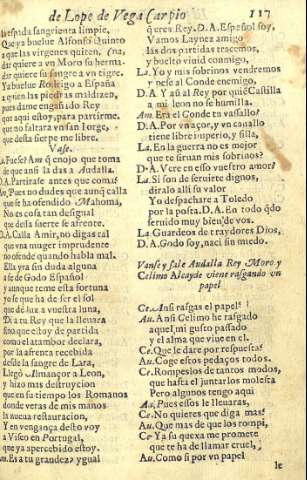 de Lope de Vega Carpio 117
la espada sangrienta limpie,
Que ya buelue Alfonso Quinto
a que las virgenes quiten,
dar quiere a vn Moro su herma-
dar quiere su sangre a vn tigre.
Ya buelue Rodrigo a España
a quien las piedras maldizen,
pues dame engañado Rey
que aqui estoy, para partirme.
que no faltara vn san Iorge,
que desta sierpe me libre.
Vase.
Au. Fuese? Am q̃ enojo que toma
de que ansi la das a Audalla.
D.A. Partirase antes que coma?
Au. Pues no dudes que aunq̃ calla
que se ha ofendido Mahoma,
No es cosa tan desigual
que della fuerte se afrente.
D.A. Calla Amir, no digas tal
que vna muger imprudente
no ofende quando habla mal.
Ella yra sin duda alguna
a fe de Godo Español
y aunque teme esta fortuna
yo se que ha de ser el sol
que dè luz a vuestra luna,
Di a tu Rey que la lleuara
sino que estoy de partida
como el atambor declara,
por la afrenta recebida
desde la sangre de Lara,
Llegò Almançor a Leon,
y hizo mas destruycion
que en su tiempo los Romanos
donde veras de mis manos
la nueua restauracion,
Y en vengança desto voy
a Viseo en Portugal,
que ya apercebido estoy.
Am. Es a tu grandeza ygual
q̃ eres Rey. D.A. Español soy,
Vamos Laynez amigo
las dos partidas tracemos,
y buelto viuid conmigo,
La. Yo y mis sobrinos vendremos
y pese al Conde enemigo,
D.A. Y añ al Rey por quiẽ Castilla
a mi leon no se humilla.
Am. Era el Conde tu vassallo?
D.A. Por vn açor, y vn cauallo
tiene libre imperio, y silla,
La. En la guerra no es mejor
que te siruan mis sobrinos?
D.A. Vere en esso vuestro amor?
La. Si son de seruirte dignos,
diralo alli su valor
Yo despachare a Toledo
por la posta. D.A. En todo q̃do
seruido muy bien de vos.
La. Guardeos de traydores Dios,
D.A. Godo soy, naci sin miedo.
Vanse y sale Audalla Rey Moro y
Celimo Alcayde viene rasgando vn
papel
Ce. Ansi rasgas el papel?
Au. Ansi Celimo he rasgado
aquel, mi gusto passado
y el alma que viue en el.
Ce. Que le dare por respuesta?
Au. Coge estos pedaços todos.
Ce. Rompeslos de tantos modos,
que hasta el juntarlos molesta
Pero algunos tengo aqui
Au. Pues essos le lleuaras,
Ce. No quieres que diga mas?
Au. Que mas de que los rompi,
Ce. Ya su quexa me promete
que te ha de llamar cruel,
Au. Como si por vn papel
le